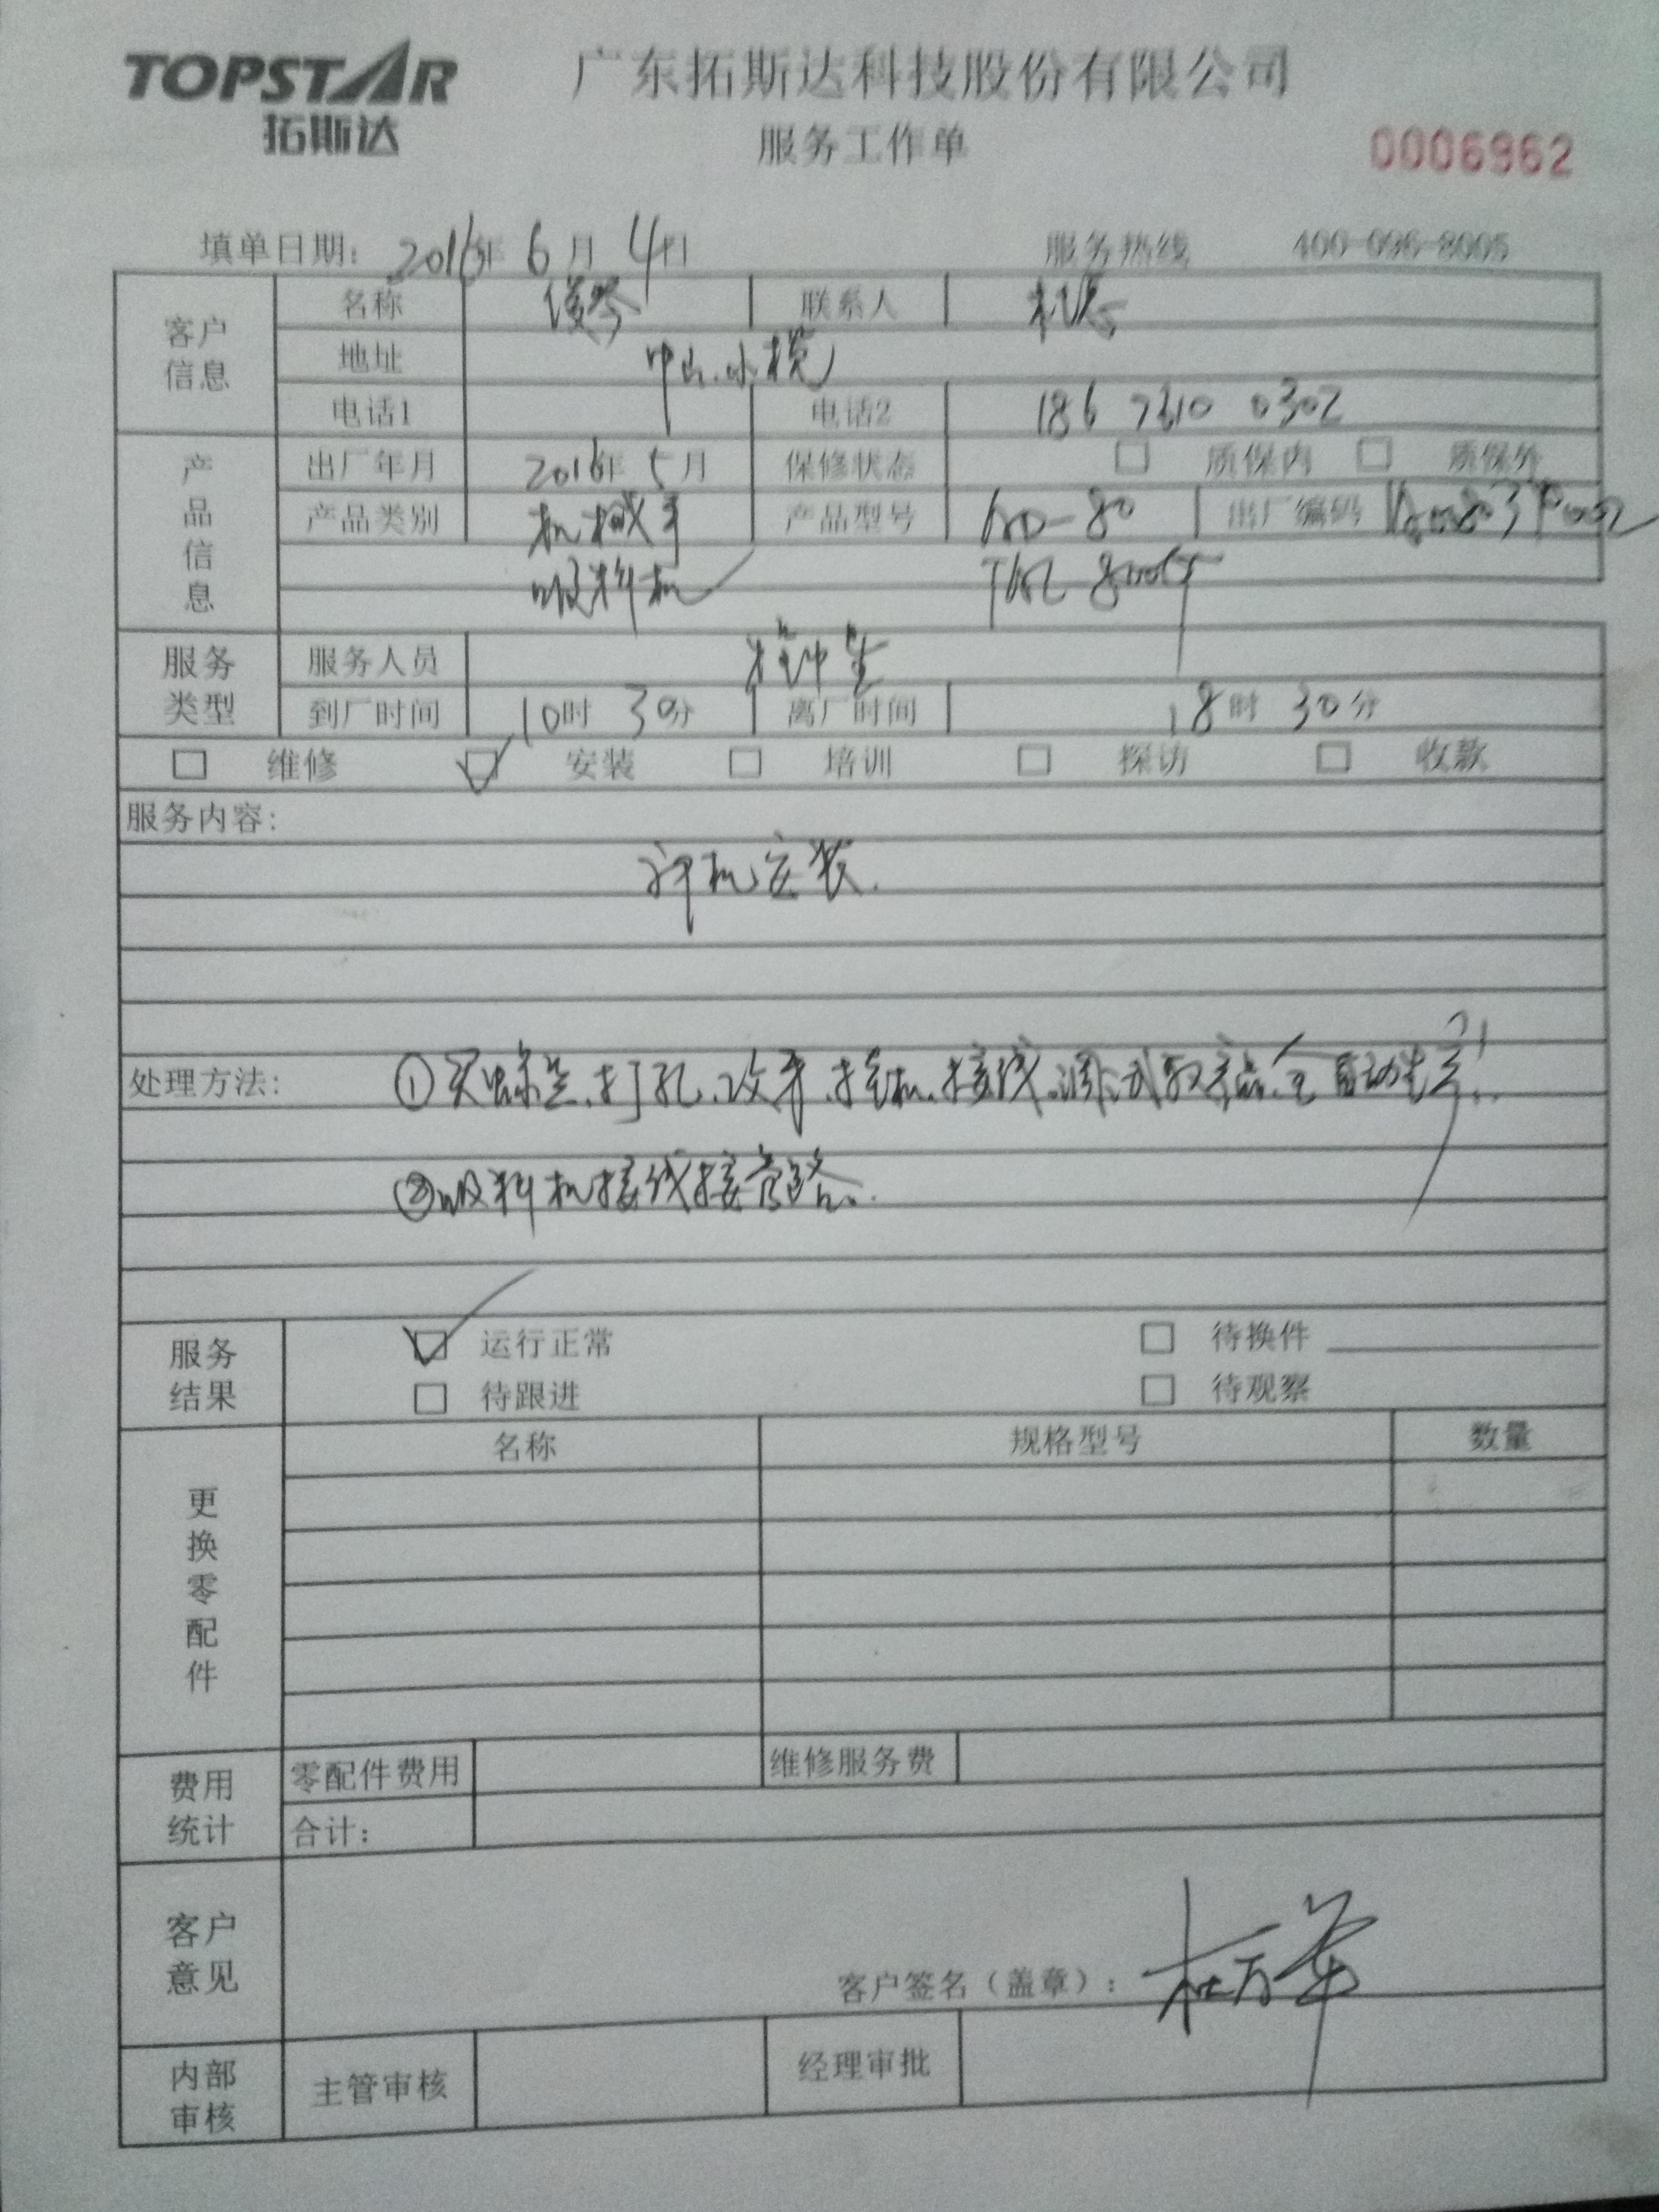 TOPSTAR
拓斯达
广东拓斯达科技股份有限公司
服务工作单
0006962
填单日期: 2016年 6月 4日 服务热线 400-096-8005
客户信息
名称 联系人
地址 中山.小榄
电话1 电话2 186 7610 0302
产品信息
出厂年月 2016年 5月 保修状态 □ 质保内 □ 质保外
产品类别 机械手 产品型号 -80 出厂编码
吸料机
服务类型
服务人员
到厂时间 10时 30分 离厂时间 18时 30分
□ 维修 ☑ 安装 □ 培训 □ 探访 □ 收款
服务内容:
安装.
处理方法: ① 打孔、改牙、接线、调试取产品、全自动生产.
②吸料机接线接管路.
服务结果
☑ 运行正常 □ 待换件
□ 待跟进 □ 待观察
更换零配件
名称 规格型号 数量
费用统计
零配件费用 维修服务费
合计:
客户意见
客户签名（盖章）:
内部审核
主管审核 经理审批